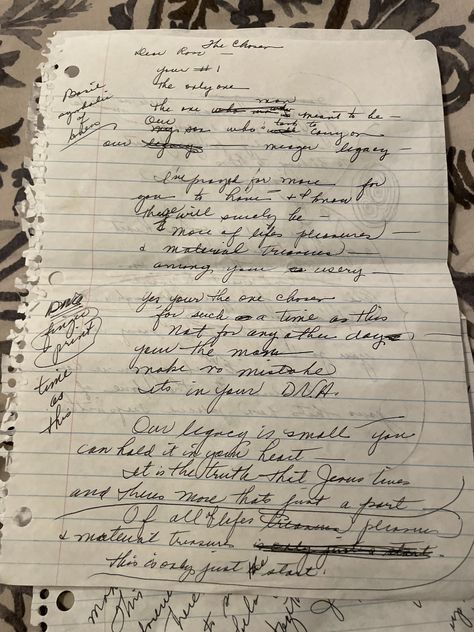 The Chosen
Dear Ross
your #1
The only one
symbolic
of
The one who man meant to be
Our who's to carry on
our legacy meager legacy
I've prayed for more for
you to have & I know
there will surely be
& more of lifes pleasures
& material treasures
among your
Yes your the one chosen
for such a time as this
Not for any other day
your the man
make no mistake
Its in your DNA.
DNA
finger
print
time
as
this
Our legacy is small you
can hold it in your heart
It is the truth that Jesus lives
and theres more thats just a part
Of all lifes treasures pleasures
& material treasures is only just a start.
This is only just the start.